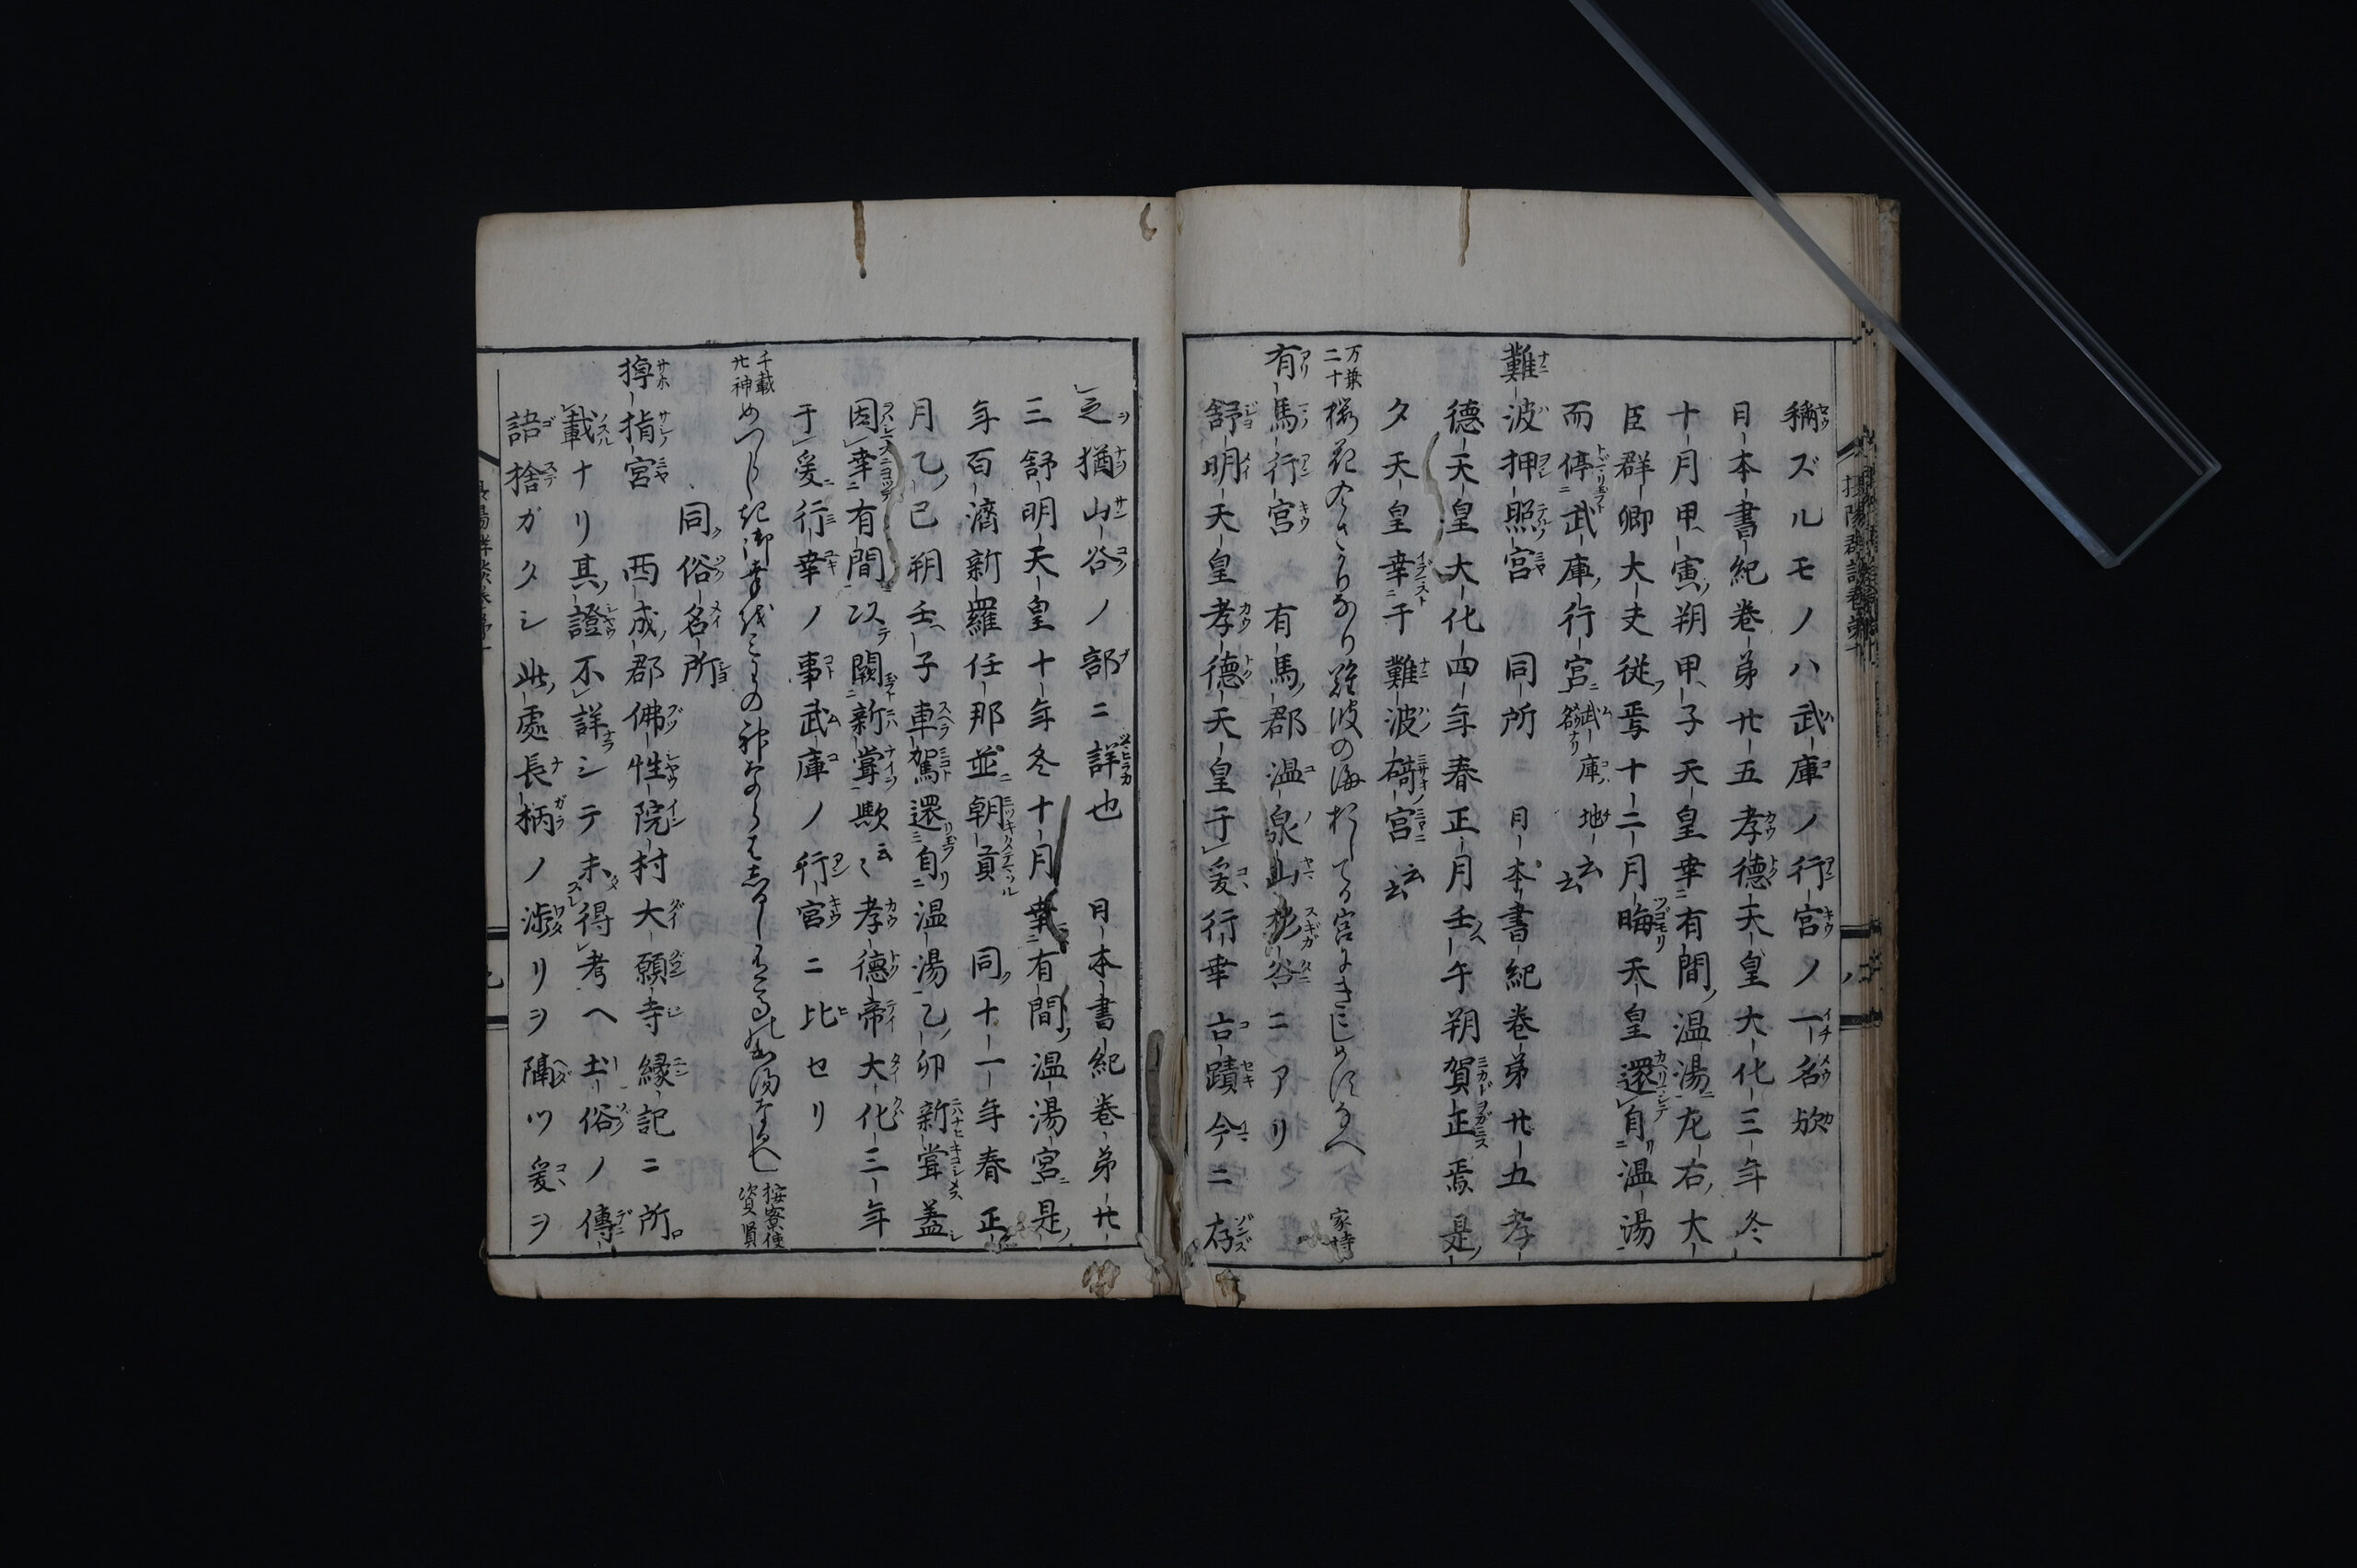 稱ズルモノハ武庫ノ行宮ノ一名欤
日本書紀巻第廿五孝德天皇大化三年冬
十月甲寅朔甲子天皇幸有間温湯左右大
臣群卿大夫從焉十二月晦天皇還自温湯
而停武庫行宮 武庫地名ナリ 云云
難波押照宮 同所 日本書紀巻第廿五孝
德天皇大化四年春正月壬午朔賀正焉是
夕天皇幸于難波碕宮 云云
万葉二十 桜花今さかりなり難波の海おしてる宮にきこしめすなへ 家持
有馬行宮 有馬郡温泉山杉谷ニアリ
舒明天皇孝德天皇于爰行幸古蹟今ニ存
之猶山谷ノ部ニ詳也 日本書紀巻第廿
三舒明天皇十年冬十月幸有間温湯宮是
年百濟新羅任那並朝貢 同十一年春正
月乙巳朔壬子車駕還自温湯乙卯新甞蓋
因幸有間以闕新甞歟云〻孝德帝大化三年
于爰行幸ノ事武庫ノ行宮ニ比セリ
千載廿神 めつらしき御幸をみわの神ならはしるしありまの出湯なるへし 按察使資賢
同俗名所
揨指宮 西成郡佛性院村大願寺縁記ニ所
載ナリ其證不詳シテ未得考ヘ土俗ノ傳
語捨ガタシ此處長柄ノ渉リヲ隔ツ爰ヲ